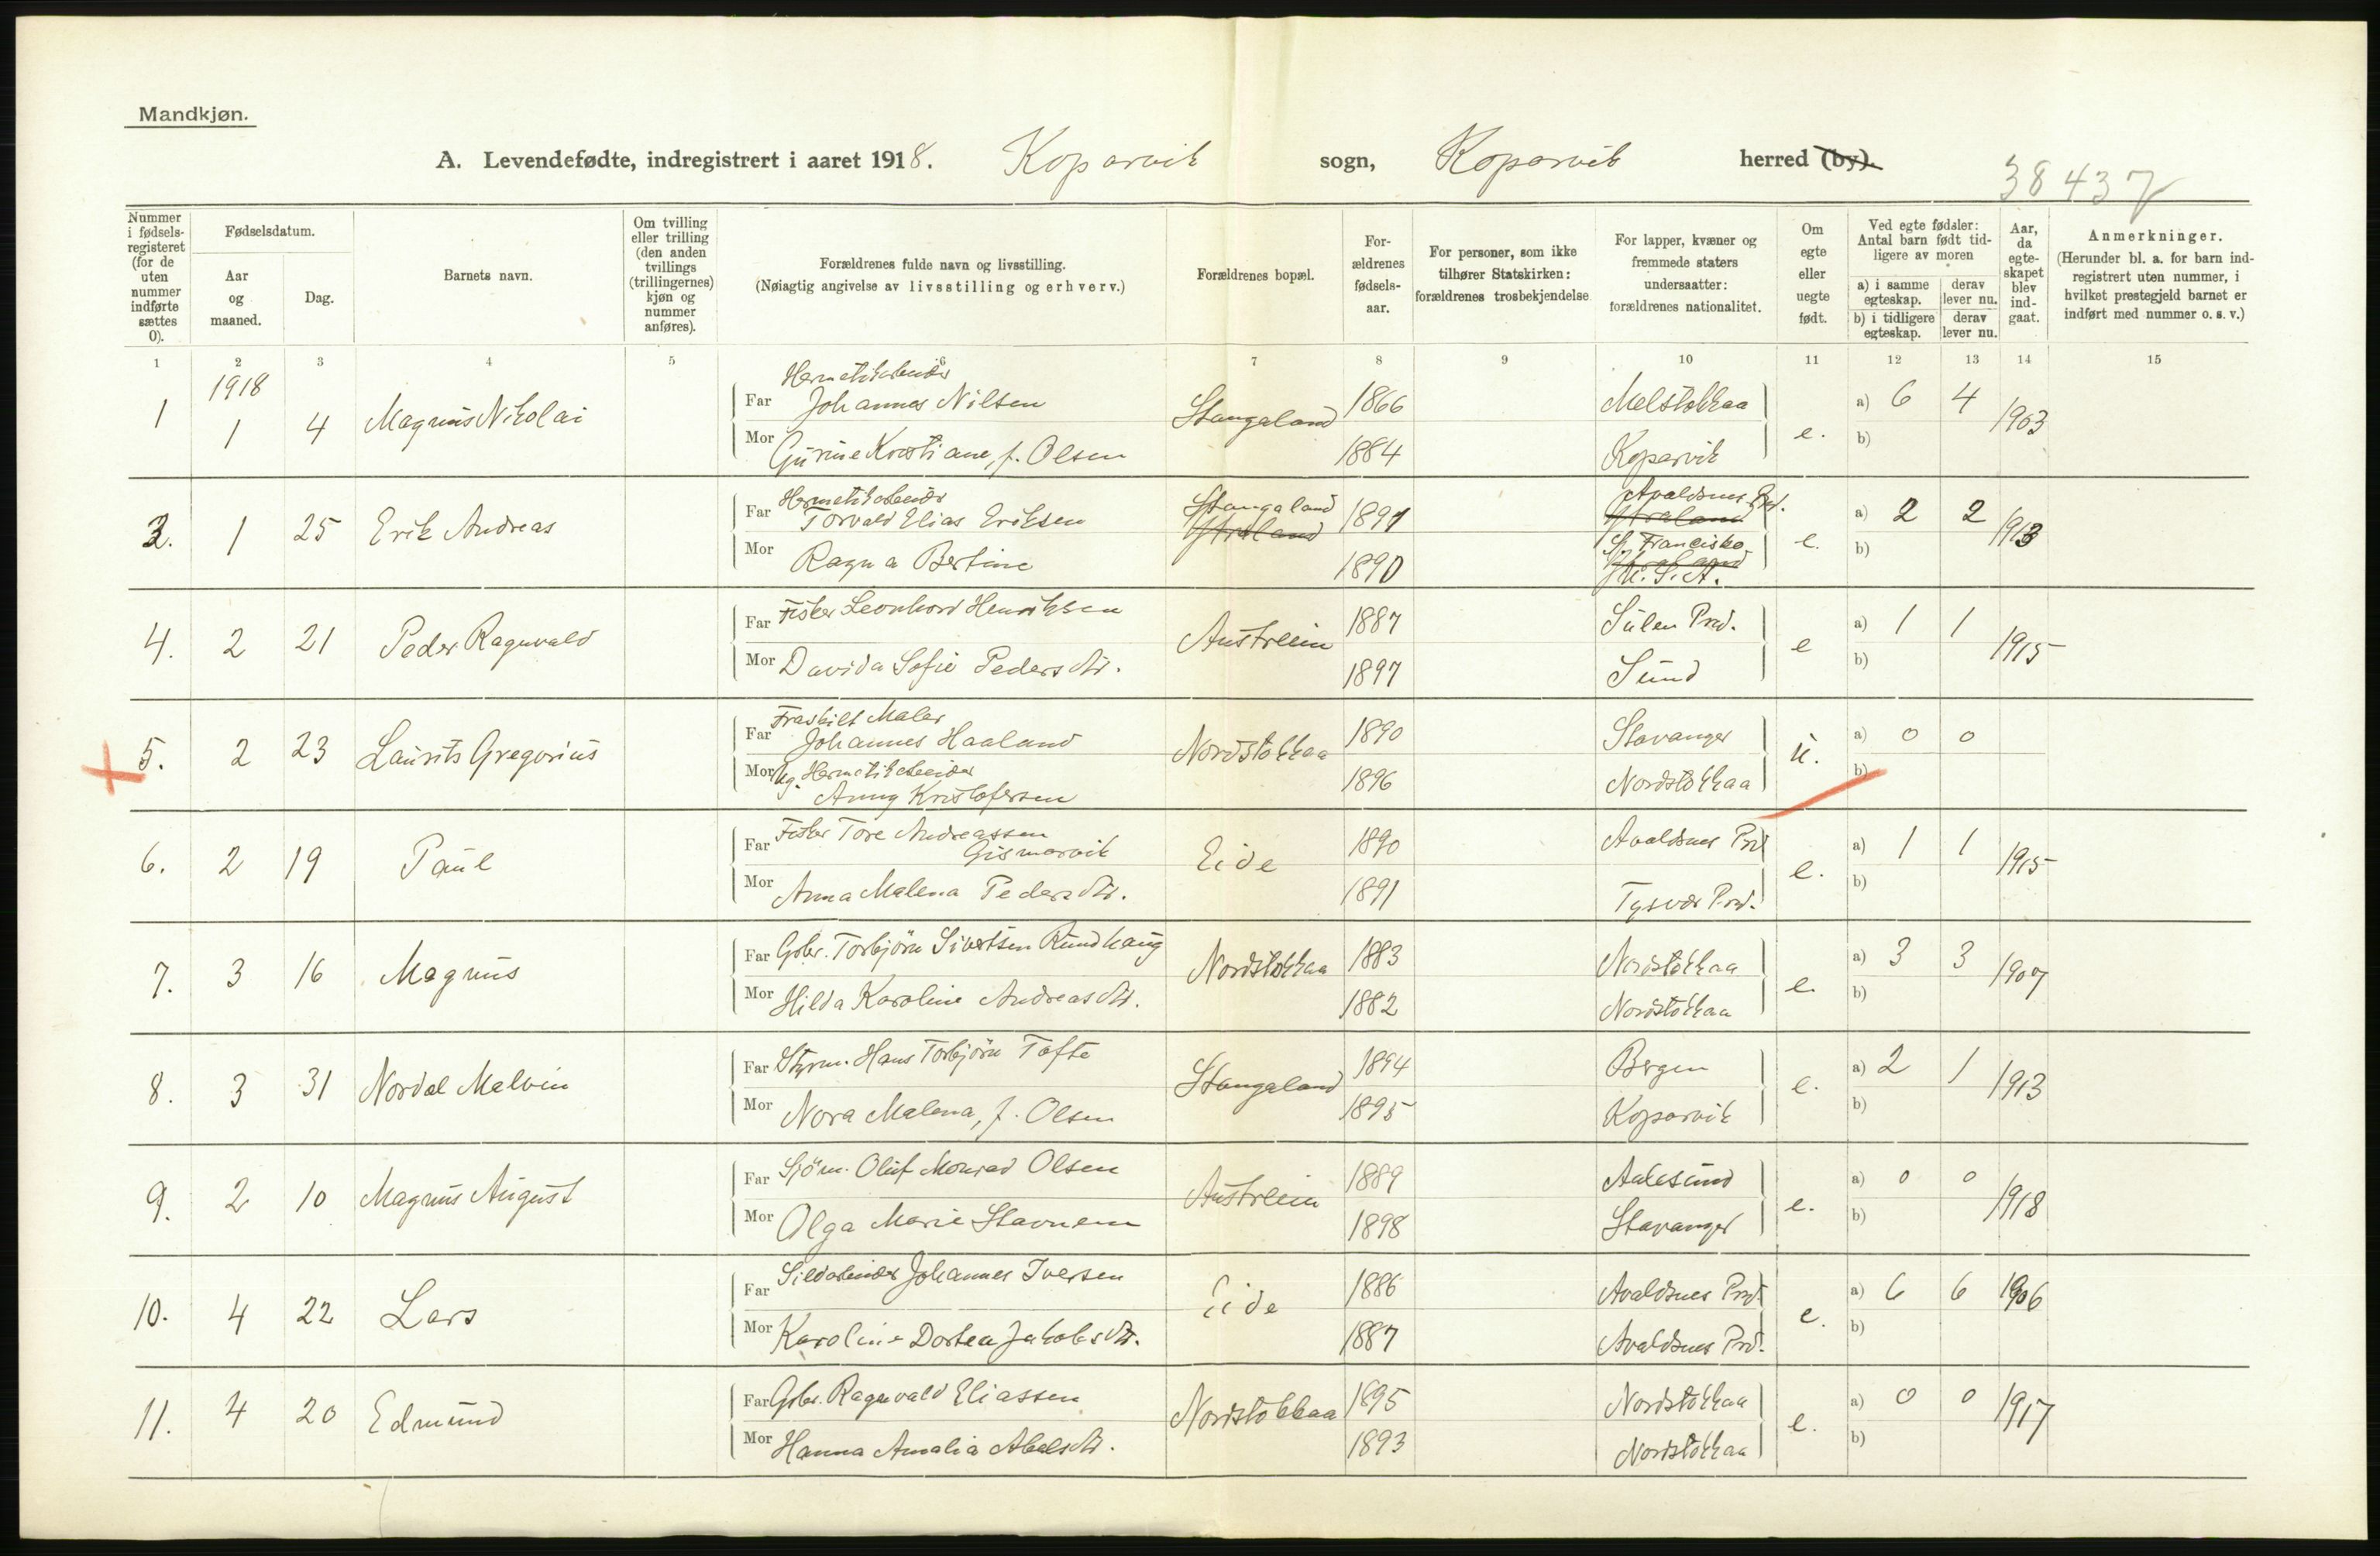 Mandkjøn.
A. Levendefødte, indregistrert i aaret 1918. Kopervik sogn, Kopervik herred (by).
38437
Nummer i fødsels-registeret (for de uten nummer indførte sættes 0).
Fødselsdatum.
Aar og maaned.
Dag.
Barnets navn.
Om tvilling eller trilling (den anden tvillings (trillingernes) kjøn og nummer anføres).
Forældrenes fulde navn og livsstilling.
(Nøiagtig angivelse av livsstilling og erhverv.)
Forældrenes bopæl.
For-ældrenes fødsels-aar.
For personer, som ikke tilhører Statskirken: forældrenes trosbekjendelse
For lapper, kvæner og fremmede staters undersaatter: forældrenes nationalitet.
Om egte eller uegte født.
Ved egte fødsler: Antal barn født tid-ligere av moren
a) i samme egteskap. derav lever nu.
b) i tidligere egteskap. derav lever nu.
Aar, da egte-skapet blev ind-gaat.
Anmerkninger.
(Herunder bl. a. for barn ind-registrert uten nummer, i hvilket prestegjeld barnet er indført med nummer o. s. v.)
1 2 3 4 5 6 7 8 9 10 11 12 13 14 15
1918
Hermetikarbeider
1 1 4 Magnus Nikolai Far Johannes Nilsen Stangaland 1866 Melstokkaa a) 6 4 1903
Mor Gurine Kristiane, f. Olsen 1884 Kopervik e. b)
Hermetikarbeider
3. 1 25 Erik Andreas Far Torvald Elias Eriksen Stangaland 1891 Avaldsnes Prd. a) 2 2 1913
Mor Ragna Bertine 1890 S. Francisko U.S.A. e. b)
4. 2 21 Peder Ragnvald Far Fisker Leonhard Henriksen Austreim 1887 Sulen Prd. a) 1 1 1915
Mor Davida Sofie Pedersdtr. 1897 Sund e b)
Fraskilt Maler
5. 2 23 Laurits Gregorius Far Johannes Haaland Nordstokkaa 1890 Stavanger a) 0 0
Mor Ug. Hermetikarbeider
Anny Kristofersen 1896 Nordstokkaa u. b)
6. 2 19 Paul Far Fisker Tore Andreassen
Gismervik Eide 1890 Avaldsnes Prd a) 1 1 1915
Mor Anna Malena Pedersdtr. 1891 Tysvær Prd. e. b)
7. 3 16 Magnus Far Gbr. Torbjørn Sivertsen Rundhaug Nordstokkaa 1883 Nordstokkaa a) 3 3 1907
Mor Hilda Karoline Andreasdtr. 1882 Nordstokkaa e. b)
8. 3 31 Nordal Malvin Far Styrm. Hans Torbjørn Tofte Stangaland 1894 Bergen a) 2 1 1913
Mor Nora Malena, f. Olsen 1895 Kopervik e. b)
9. 2 10 Magnus August Far Sjöm. Oluf Monrad Olsen Austreim 1889 Aalesund a) 0 0 1918
Mor Olga Marie Stavnem 1898 Stavanger e. b)
10. 4 22 Lars Far Sildarbeider Johannes Iversen Eide 1886 Avaldsnes Prd. a) 6 6 1906
Mor Karoline Dortea Jakobsdtr. 1887 Avaldsnes Prd. e. b)
11. 4 20 Edmund Far Gbr. Ragnvald Eliassen Nordstokkaa 1895 Nordstokkaa a) 0 0 1917
Mor Hanna Amalia Abelsdtr. 1893 Nordstokkaa e. b)